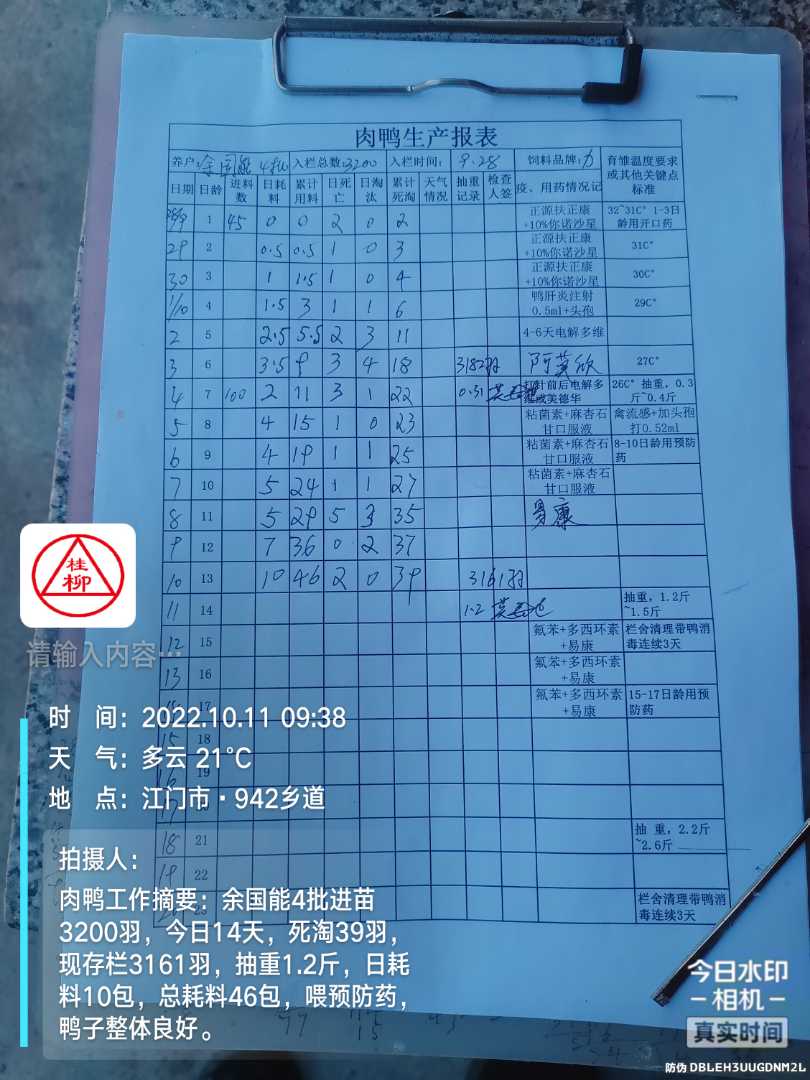 肉鸭生产报表
养户: 余国能 4批 入栏总数:3200 入栏时间: 9.28 饲料品牌:力 育雏温度要求或其他关键点标准
日期 日龄 进料数 日耗料 累计用料 日死亡 日淘汰 累计死淘 天气情况 抽重记录 检查人签 疫、用药情况记
1 45 0 0 2 0 2 正源扶正康+10%你诺沙星 32~31C° 1-3日龄用开口药
29 2 0.5 0.5 1 0 3 正源扶正康+10%你诺沙星 31C°
30 3 1 1.5 1 0 4 正源扶正康+10%你诺沙星 30C°
1/10 4 1.5 3 1 1 6 鸭肝炎注射0.5ml+头孢 29C°
2 5 2.5 5.5 2 3 11 4-6天电解多维
3 6 3.5 9 3 4 18 3182羽 阿莫欣 27C°
4 7 100 2 11 3 1 22 0.31 打针前后电解多维或美德华 26C° 抽重，0.3斤~0.4斤
5 8 4 15 1 0 23 粘菌素+麻杏石甘口服液 禽流感+加头孢打0.52ml
6 9 4 19 1 1 25 粘菌素+麻杏石甘口服液 8-10日龄用预防药
7 10 5 24 1 1 27 粘菌素+麻杏石甘口服液
8 11 5 29 5 3 35 易康
9 12 7 36 0 2 37
10 13 10 46 2 0 39 3161羽
11 14 1.2 抽重，1.2斤~1.5斤
12 15 氟苯+多西环素+易康 栏舍清理带鸭消毒连续3天
13 16 氟苯+多西环素+易康
17 氟苯+多西环素+易康 15-17日龄用预防药
15 18
16 19
17
18 21 抽 重，2.2斤~2.6斤
19 22
23 栏舍清理带鸭消毒连续3天
桂柳
请输入内容…
时 间：2022.10.11 09:38
天 气：多云 21℃
地 点：江门市·942乡道
拍摄人：
肉鸭工作摘要：余国能4批进苗
3200羽，今日14天，死淘39羽，
现存栏3161羽，抽重1.2斤，日耗
料10包，总耗料46包，喂预防药，
鸭子整体良好。
今日水印
-相机-
真实时间
防伪 DBLEH3UUGDNM2L